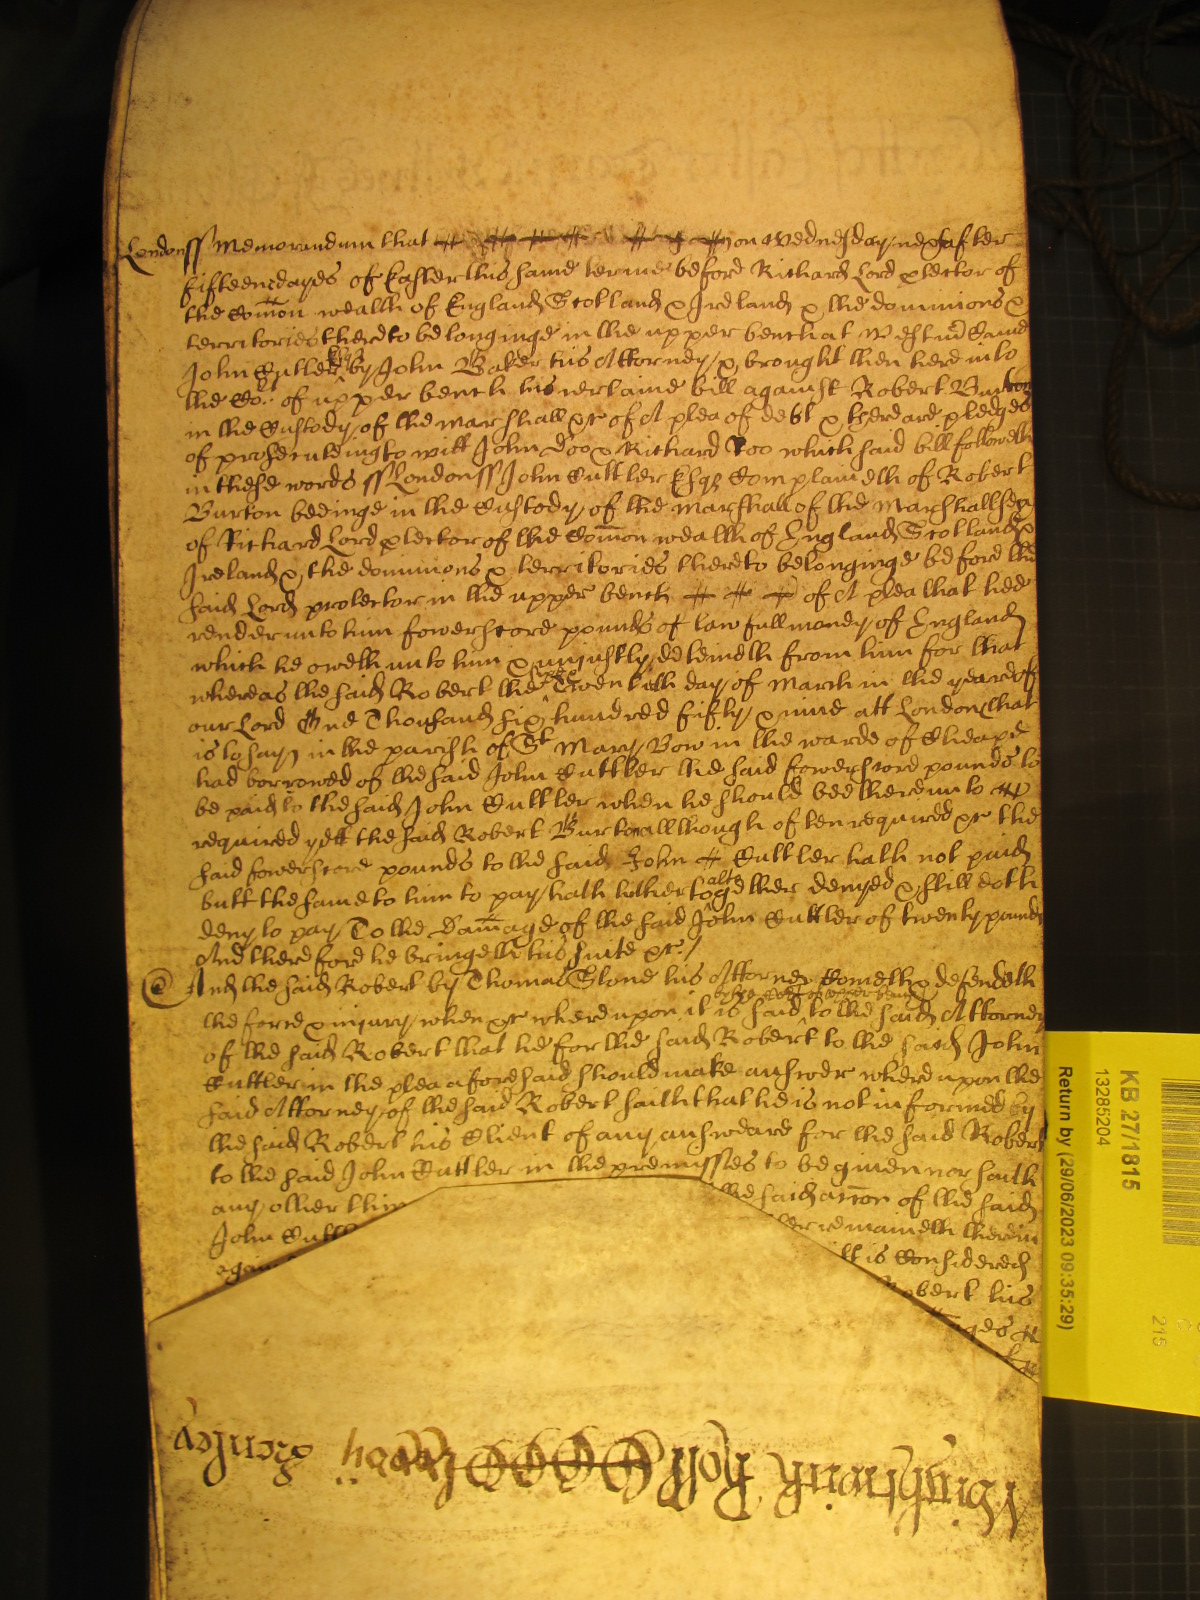 Londonss Memorandum that on Wednesday next after
fifteene dayes of Easter this same terme before Richard Lord p̱tector of
the Com̄on wealth of England Scotland & Ireland & the dominions &
territories thereto belonginge in the upper bench at Westm̄ Came
John Cutler Esq by John Baker his Attorney & brought then here into
the Cort of upper bench his certaine bill against Robert Burton
in the Custody of the marshall &c of A plea of debt & there are pledges
of prosecuteing to witt John Doo & Richard Roo which said bill followeth
in these words ss Londonss John Cuttler Esqr Complaineth of Robert
Burton beeinge in the Custody of the marshall of the Marshallsea
of Richard Lord p̱tector of the Com̄on wealth of England Scotland &
Ireland & the dominions & territories thereto belonginge before the
said Lord protector in the upper bench of A plea that hee
render unto him fowerscore pounds of lawfull money of England
which he oweth unto him & unjustly deteineth from him for that
whereas the said Robert the Twentieth day of March in the yeare of
our Lord One Thousand six hundred fifty & nine att London that
is to say in the parish of St Mary Bow in the warde of Cheape
had borrowed of the said John Cuttler the said fowerscore pounds to
be paid to the said John Cuttler when he should bee thereunto
required yett the said Robert Burton allthough often required &c the
said fowerscore pounds to the said John Cuttler hath not paid
butt the same to him to pay hath hitherto altogether denyed & still doth
deny to pay To the Dam̄age of the said John Cuttler of twenty pounds
And therefore he bringeth his suite &c /
And the said Robert by Thomas Stone his Attorney Cometh & defendeth
the force & injury when &c whereupon it is said by the Cort of upper bench to the said Attorney
of the said Robert that he for the said Robert to the said John
Cuttler in the plea aforesaid should make answer whereupon the
said Attorney of the said Robert saith that he is not informed by
the said Robert his Client of any answeare for the said Robert
to the said John Cuttler in the premisses to be given nor saith
any other thin the said acc̄on of the said
John Cuttl remaineth therein
again it is Considered
Robert his
ages
Roll
KB 27/1815
13285204
Return by (29/06/2023 09:35:29)
215